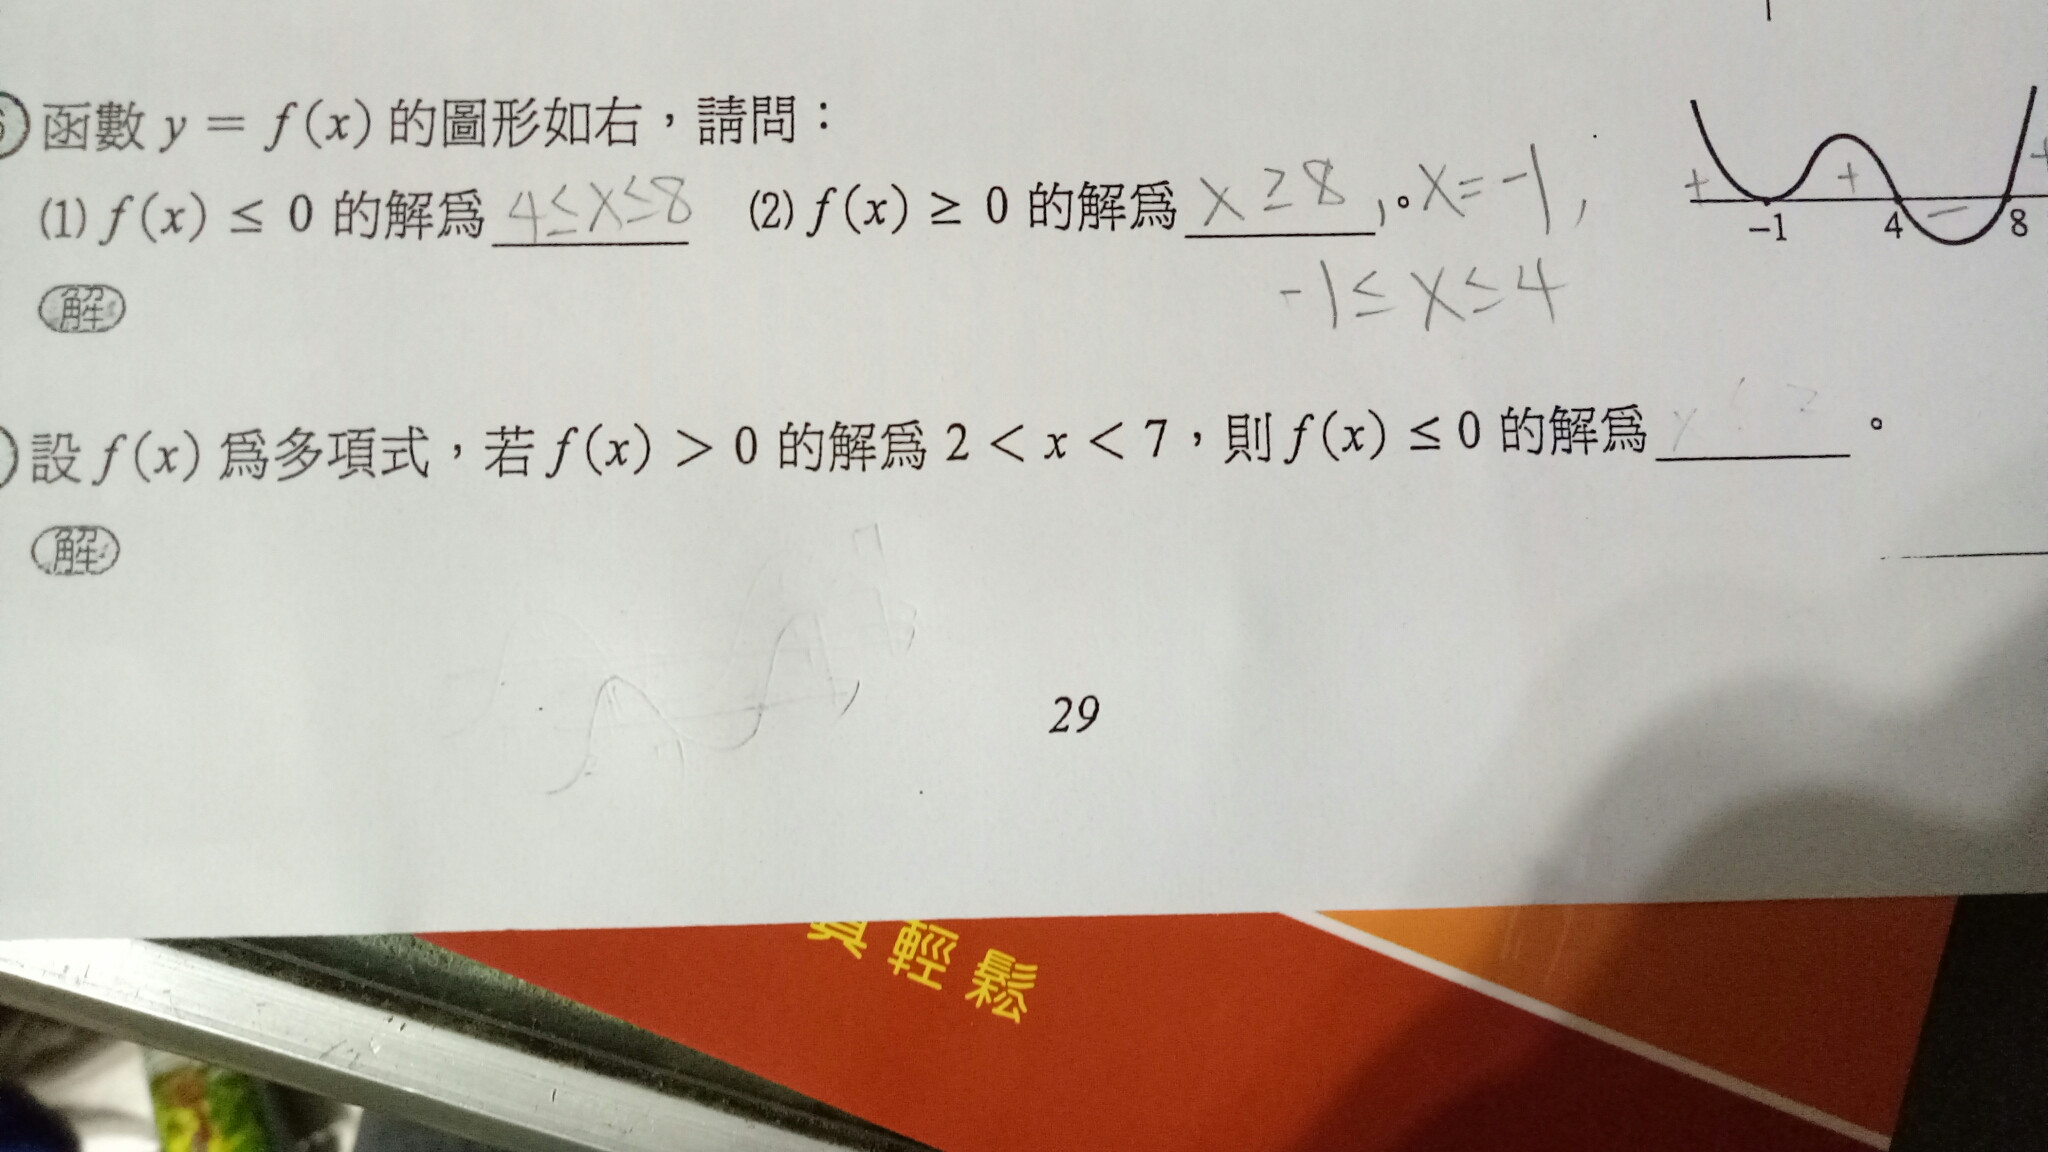 函數 y = f(x) 的圖形如右，請問：
(1) f(x) ≤ 0 的解爲 4≤x≤8 (2) f(x) ≥ 0 的解爲 x≥8, 。x=-1,
-1≤x≤4
+ + - +
-1 4 8
解
設 f(x) 爲多項式，若 f(x) > 0 的解爲 2 < x < 7，則 f(x) ≤ 0 的解爲 。
解
29
輕鬆